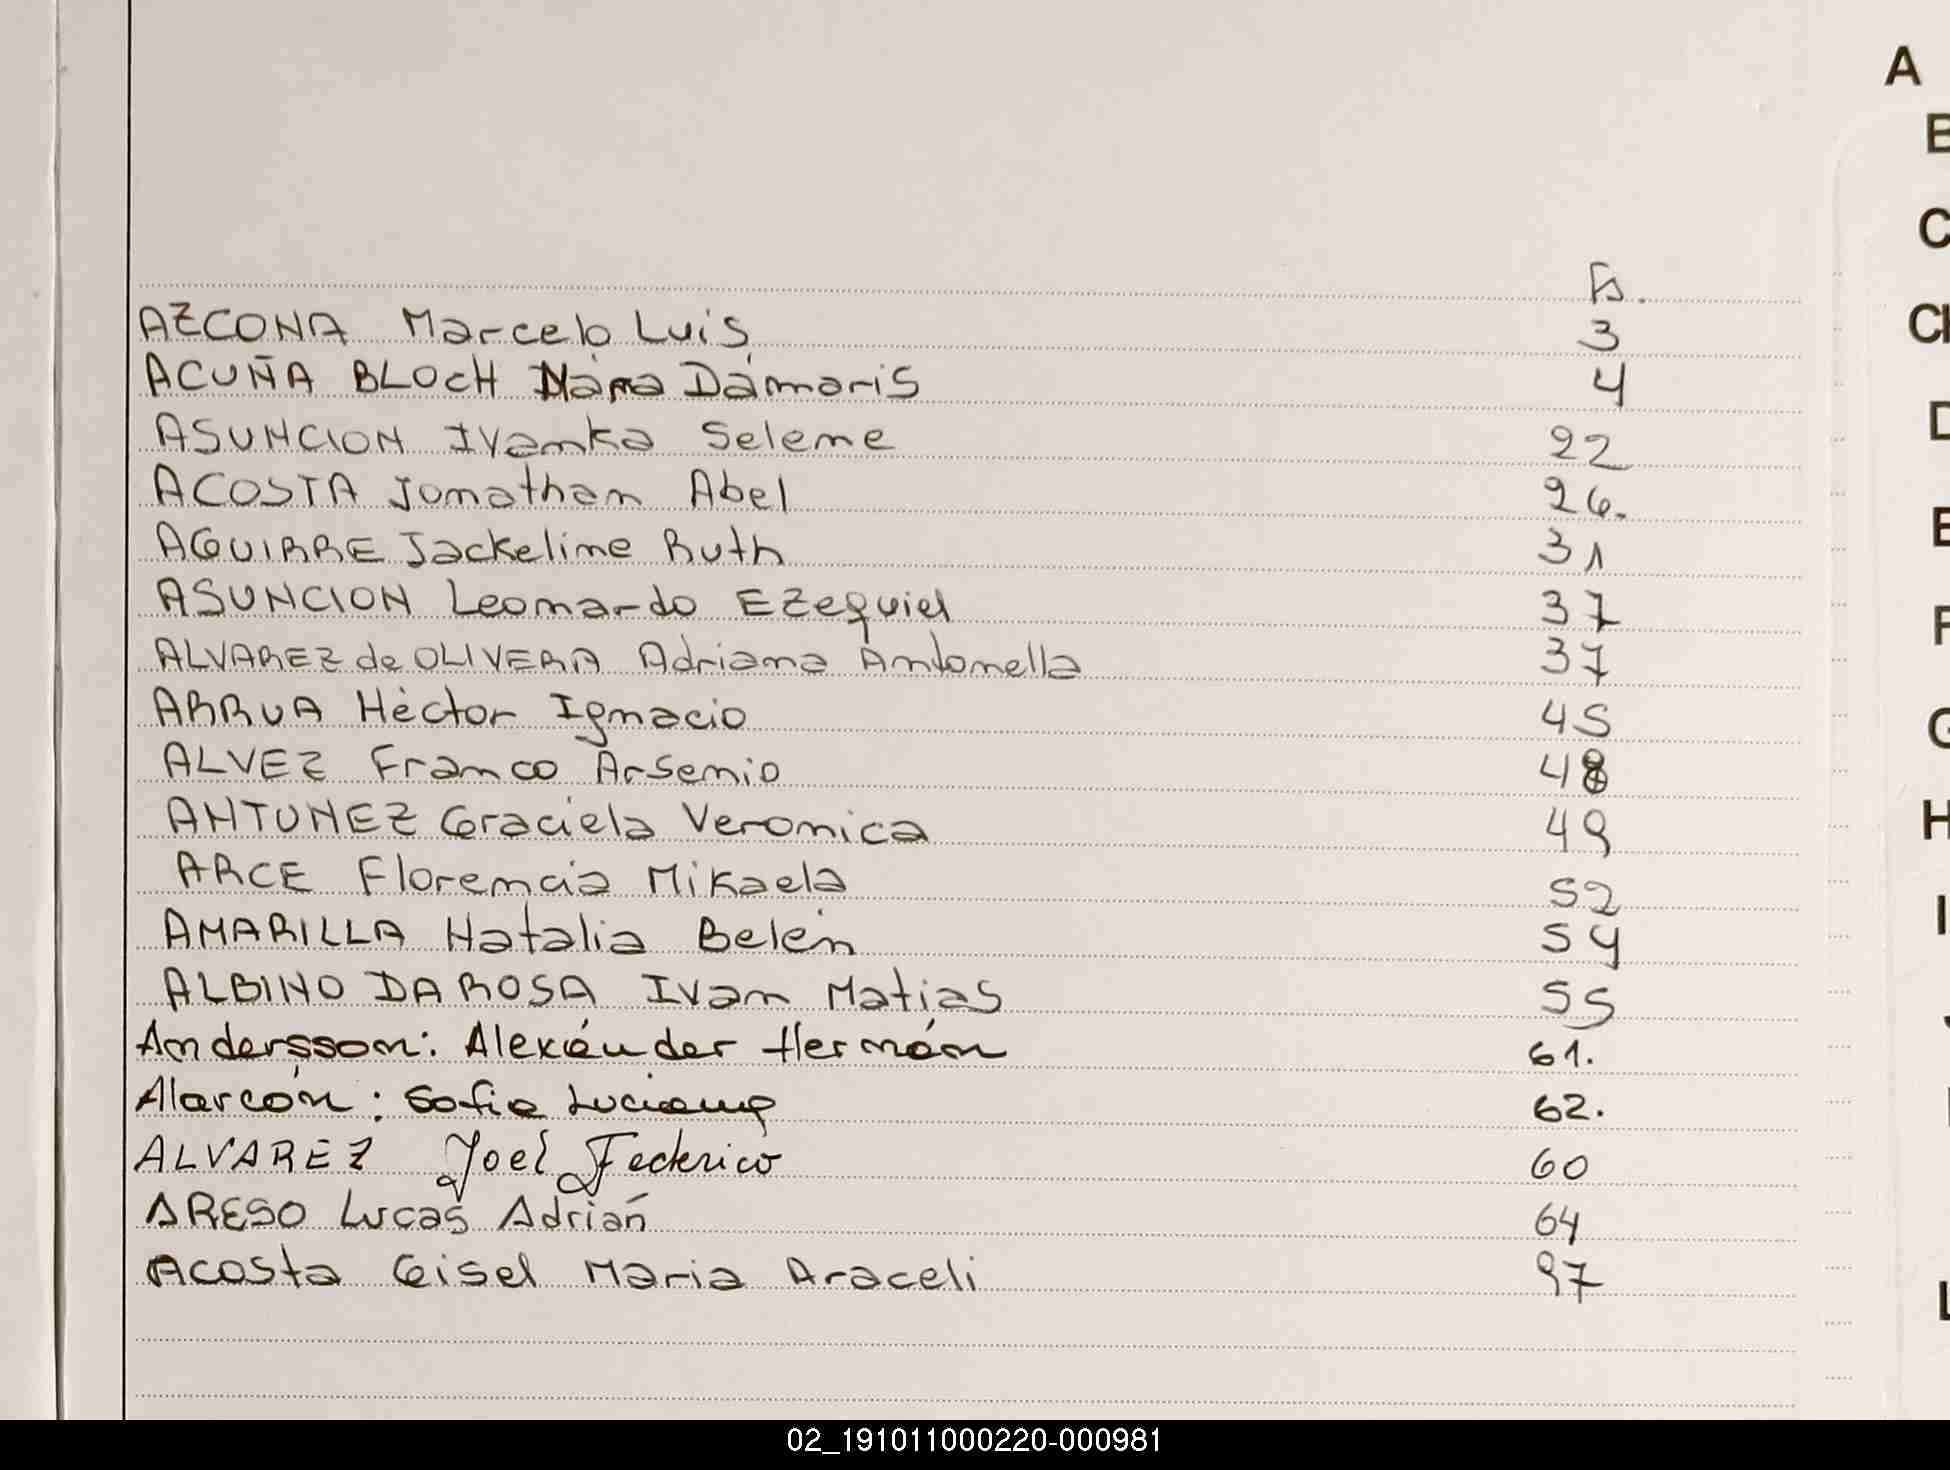 Fs.
AZCONA Marcelo Luis 3
ACUÑA BLOCH Dámaris 4
ASUNCION Ivanka Selene 22
ACOSTA Jonathan Abel 26.
AGUIRRE Jackeline Ruth 31
ASUNCION Leonardo Ezequiel 37
ALVAREZ de OLIVERA Adriana Antonella 37
ARRUA Héctor Ignacio 45
ALVEZ Franco Arsenio 48
ANTUNEZ Graciela Veronica 49
ARCE Florencia Mikaela 52
AMARILLA Natalia Belén 54
ALBINO DA ROSA Ivan Matias 55
Andersson: Alexánder Hernán 61.
Alarcón: Sofia Luciana 62.
ALVAREZ Joel Federico 60
ARESO Lucas Adrián 64
Acosta Gisel Maria Araceli 97
A
B
C
CH
D
E
F
G
H
I
L
02_191011000220-000981